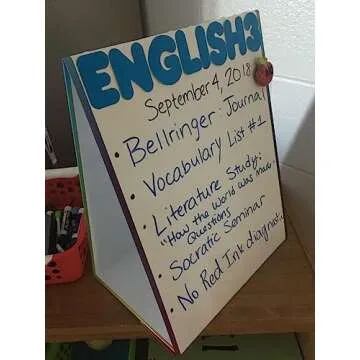 ENGLISH3
September 4, 2018
• Bellringer - Journal
• Vocabulary List #1
• Literature Study:
"How the World was Made"
Questions
• Socratic Seminar
• No Red Ink diagnost.